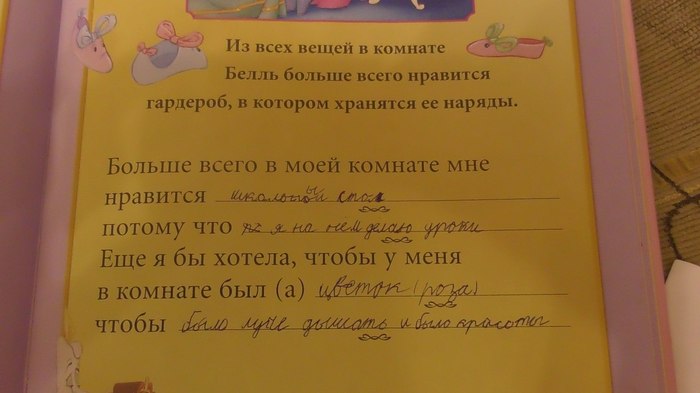 Из всех вещей в комнате
Белль больше всего нравится
гардероб, в котором хранятся ее наряды.
Больше всего в моей комнате мне
нравится школьный стол
потому что я на нем делаю уроки
Еще я бы хотела, чтобы у меня
в комнате был (а) цветок (роза)
чтобы было луче дышать и было красоты